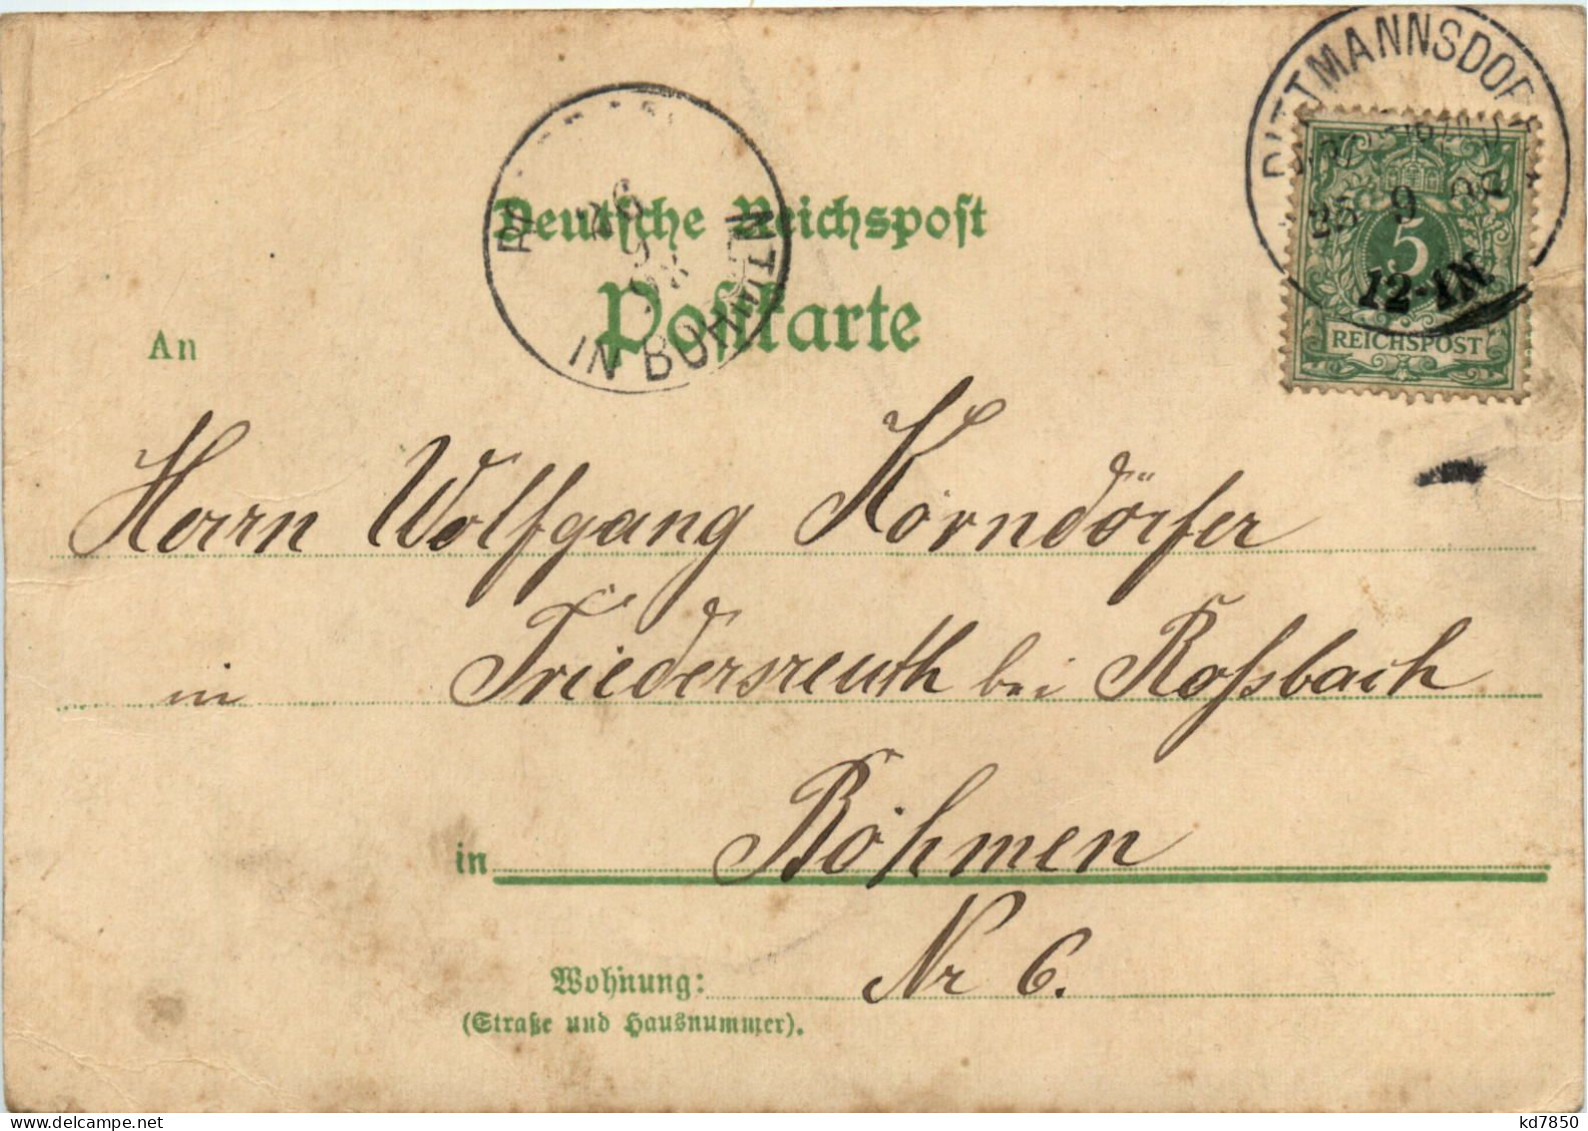 DITTMANNSDORF
25 9 98
12-1N
5
REICHSPOST
26
9
98
IN BÖHMEN
Deutsche Reichspost
Postkarte
An
Herrn Wolfgang Körndörfer
in Friedersreuth bei Roßbach
in Böhmen
Wohnung: Nr 6.
(Straße und Hausnummer).
kd7850